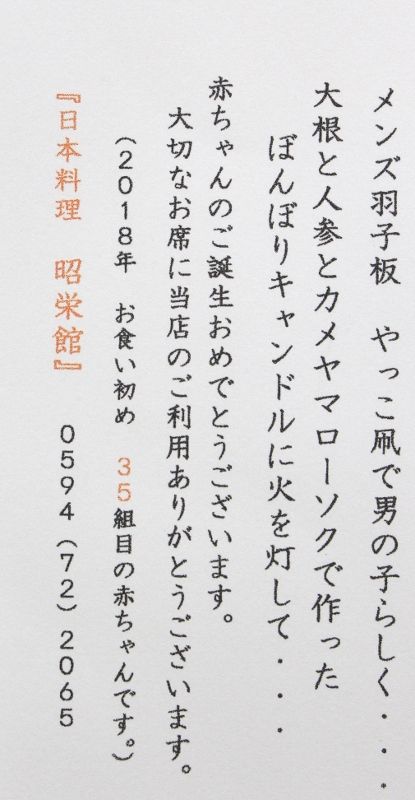 メンズ羽子板　やっこ凧で男の子らしく・・・
大根と人参とカメヤマローソクで作った
ぼんぼりキャンドルに火を灯して・・・
赤ちゃんのご誕生おめでとうございます。
大切なお席に当店のご利用ありがとうございます。
（2018年　お食い初め　35組目の赤ちゃんです。）
『日本料理　昭栄館』　0594（72）2065